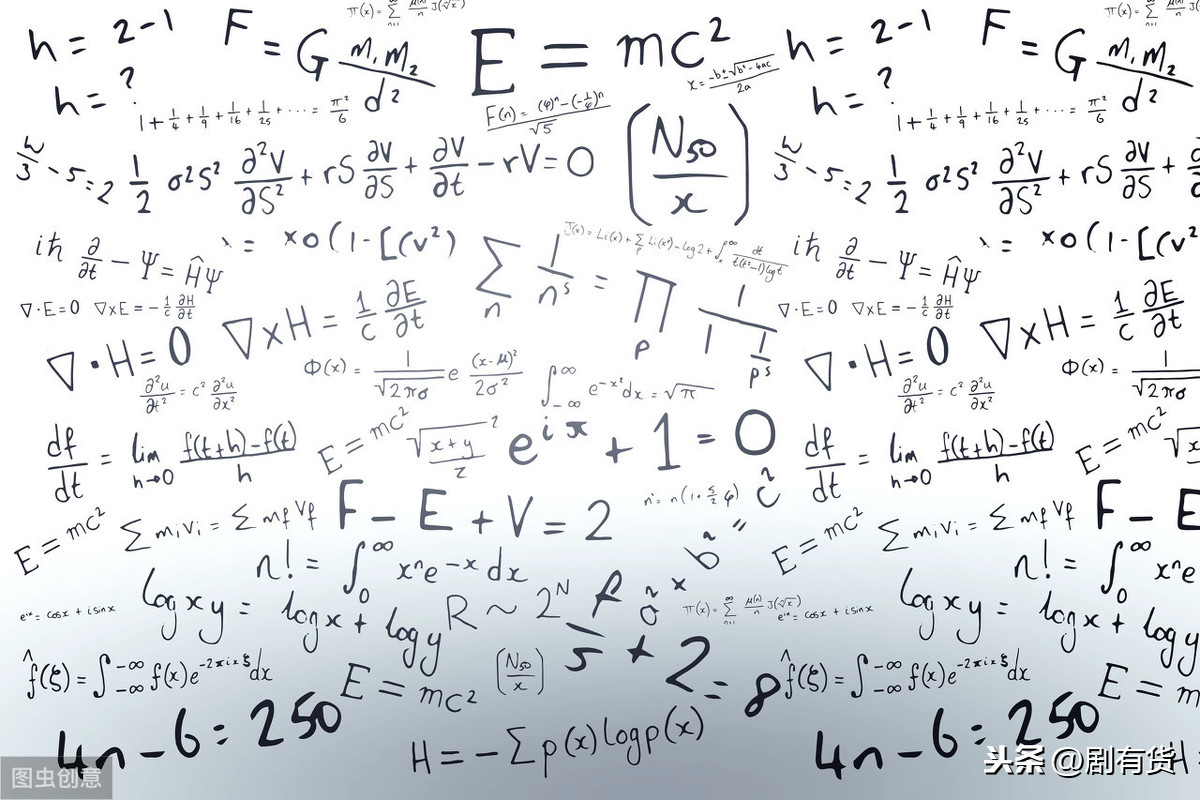 h = 2-1
F = G m₁m₂/d²
π(x) = Σ_{n=1}^∞ μ(n)/n J(ⁿ√x)
E = mc²
x = -b±√b²-4ac / 2a
h = 2-1
F = G m₁m₂/d²
h = ?
1+1/4+1/9+1/16+1/25+.... = π²/6
F(n) = (φ)ⁿ-(-1/φ)ⁿ / √5
(N50/x)
h = ?
1+1/4+1/9+1/16+1/25+.... = π²/6
1/2 σ²S² ∂²V/∂S² + rS ∂V/∂S + ∂V/∂t - rV = 0
1/2 σ²S² ∂²V/∂S² + rS ∂V/∂S +
iħ ∂/∂t - Ψ = ĤΨ
= xo(1-[(v²)
J(x) = Li(x) + Σ_p Li(x^p) - log2 + ∫_x^∞ dt/t(t²-1)logt
iħ ∂/∂t - Ψ = ĤΨ
= xo(1-[(v²
Σ_n 1/nˢ = Π_p 1/1 1/pˢ
∇·E=0 ∇xE = -1/c ∂H/∂t
∇xH = 1/c ∂E/∂t
∇·E=0 ∇xE = -1/c ∂H/∂t
∇xH = 1/c ∂E/∂t
∇·H = 0
Φ(x) = 1/√2πσ e (x-μ)²/2σ²
∫_{-∞}^∞ e^{-x²}dx = √π
∇·H = 0
Φ(x) = 1/√2πσ
∂²u/∂t² = c² ∂²u/∂x²
∂²u/∂t² = c² ∂²u/∂x²
df/dt = lim_{h→0} f(t+h)-f(t) / h
E = mc²
√x+y/z ²
e^{iπ} + 1 = 0
df/dt = lim_{h→0} f(t+h)-f(t) / h
E = mc²
E = mc²
Σ mᵢvᵢ = Σ mf vf
F - E + V = 2
a² + b² = c²
E = mc²
Σ mᵢvᵢ = Σ mf vf
F - E
n! = ∫_0^∞ xⁿe^{-x} dx
n! = ∫_0^∞ xⁿe
e^{ix} = cosx + isinx
log xy = logx + logy
R ~ 2^N
π(x) = Σ_{n=1}^∞ μ(n)/n J(ⁿ√x)
e^{ix} = cosx + isinx
log xy = logx + logy
f̂(ξ) = ∫_{-∞}^{-∞} f(x)e^{-2πixξ}dx
E = mc²
(N50/x)
5 + 2 = 8
f̂(ξ) = ∫_{-∞}^{-∞} f(x)e^{-2πixξ}dx
E = m
4n - 6 = 250
H = -Σp(x)logp(x)
4n - 6 = 250
H
图虫创意
头条 @剧有货